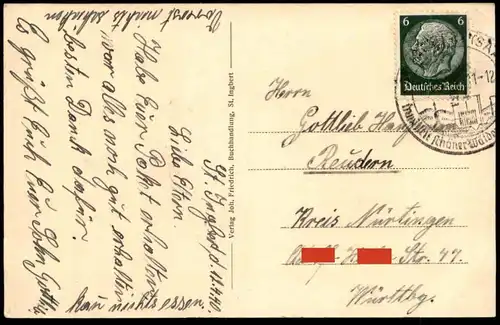 St. Ingbert d. 11.4.40.
Liebe Eltern.
Habe Euer Paket erhalten
war alles noch gut erhalten
besten Dank dafür.
Es grüßt Euch Euer Sohn Gottlieb
kann nichts essen.
Vorerst nichts schicken
Verlag Joh. Friedrich, Buchhandlung, St. Ingbert
6 6
Deutsches Reich
inmitten schöner Wälder
Herrn
Gottlieb
Reudern.
Kreis Nürtingen
Str. 47.
Württbg.